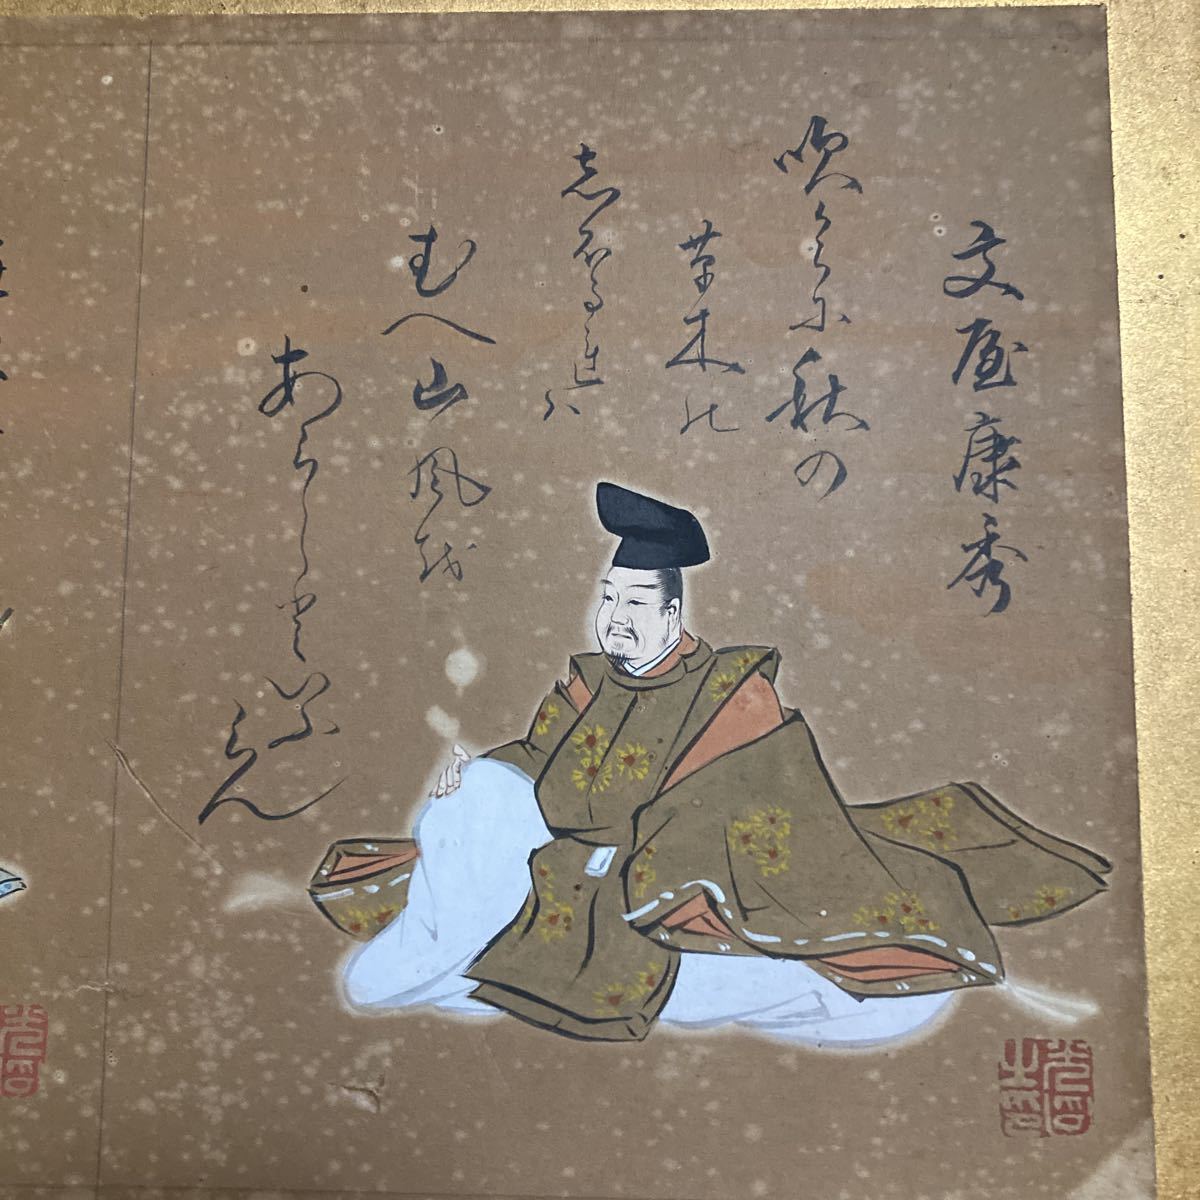 文屋康秀
吹くからに秋の
草木の
志をるれハ
むへ山風を
あらしといふ
らん